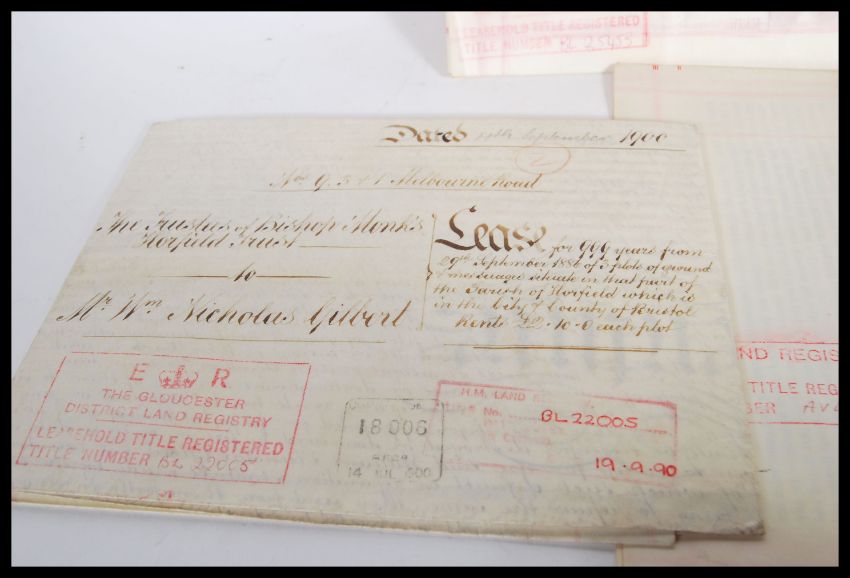 LEASEHOLD TITLE REGISTERED
TITLE NUMBER BL 25455
Dated 11th September 1900
Nos 9, 3 & 1 Melbourne Road
The Trustees of Bishop Monk's
Horfield Trust
to
Mr Wm Nicholas Gilbert
Lease for 999 years from
29th September 1886 of 3 plots of ground
& messuages situate in that part of
the Parish of Horfield which is
in the City & County of Bristol
Rents £2-10-0 each plot
E R
THE GLOUCESTER
DISTRICT LAND REGISTRY
LEASEHOLD TITLE REGISTERED
TITLE NUMBER BL 22005
18006
14 JUL 600
H.M. LAND
No. BL22005
19.9.90
ND REGIS
TITLE REG
BER AV